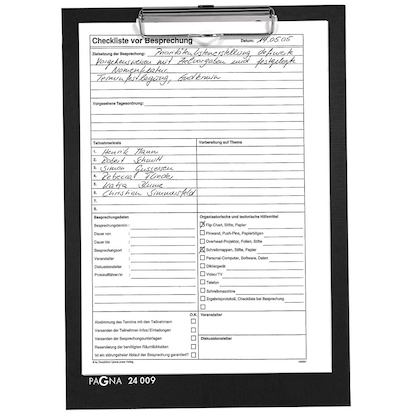 Checkliste vor Besprechung Datum: 19.05.05
Zielsetzung der Besprechung: Prioritätenlistenerstellung definierte
Vorgehensweisen mit Zielvorgaben und festgelegte
Nomenklatur
Terminfestlegung, Endtermin
Vorgesehene Tagesordnung:
Teilnehmerkreis Vorbereitung auf Thema
1. Henrik Mann
2. Robert Schmitt
3. Simon
4. Rebecca
5. Katja Blume
6. Christian Simmersfeld
7.
8.
Besprechungsdaten Organisatorische und technische Hilfsmittel
Besprechungstermin: Flip-Chart, Stifte, Papier
Dauer von Pinwand, Push-Pins, Papierbögen
Dauer bis Overhead-Projektor, Folien, Stifte
Besprechungsort Schreibmappen, Stifte, Papier
Veranstalter Personal-Computer, Software, Daten
Diskussionsleiter Diktiergerät
Protokollführer Video/TV
Telefon
Schreibmaschine
Ergebnisprotokoll, Checkliste bei Besprechung
O.K. Veranstalter
Abstimmung des Termins mit den Teilnehmern
Versenden der Teilnehmer-Infos/Einladungen
Versenden der Besprechungsunterlagen Diskussionsleiter
Reservierung der benötigten Räumlichkeiten
Ist ein störungsfreier Ablauf der Besprechung garantiert?
PAGNA 24 009